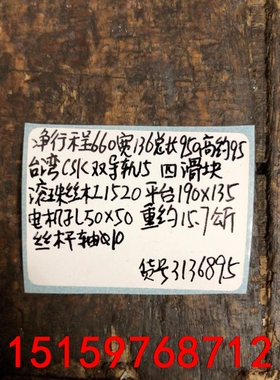 净行程660宽136总长950高约95
台湾CSK双导轨15 四滑块
滚珠丝杠1520 平台190X135
电机孔50X50 重约15.7斤
丝杆轴φ10
货号3136895
15159768712